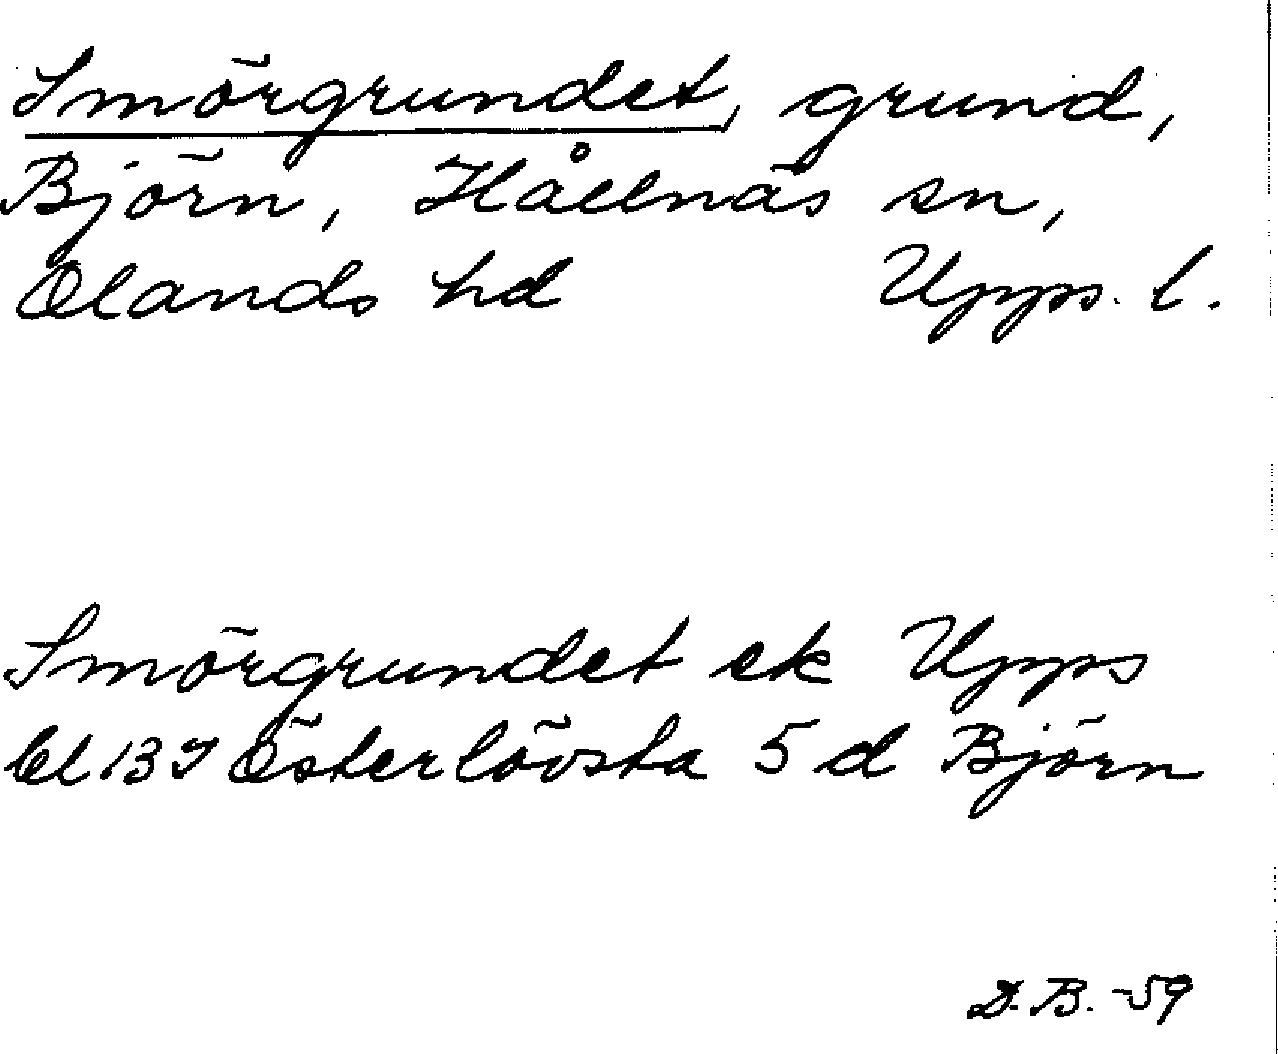 Smörgrundet, grund,
Björn, Hållnäs sn,
Olands hd Upps. l.
Smörgrundet ek Upps
bl 13 Österlövsta 5 d Björn
D.B. -59